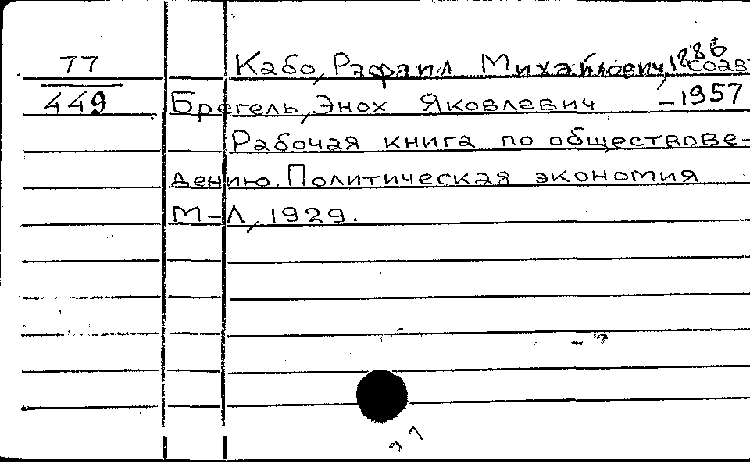 77
Кабо, Рафаил Михайлович, 1886 соав
449
Брегель, Энох Яковлевич -1957
Рабочая книга по обществове-
дению. Политическая экономия
М-Л, 1929.